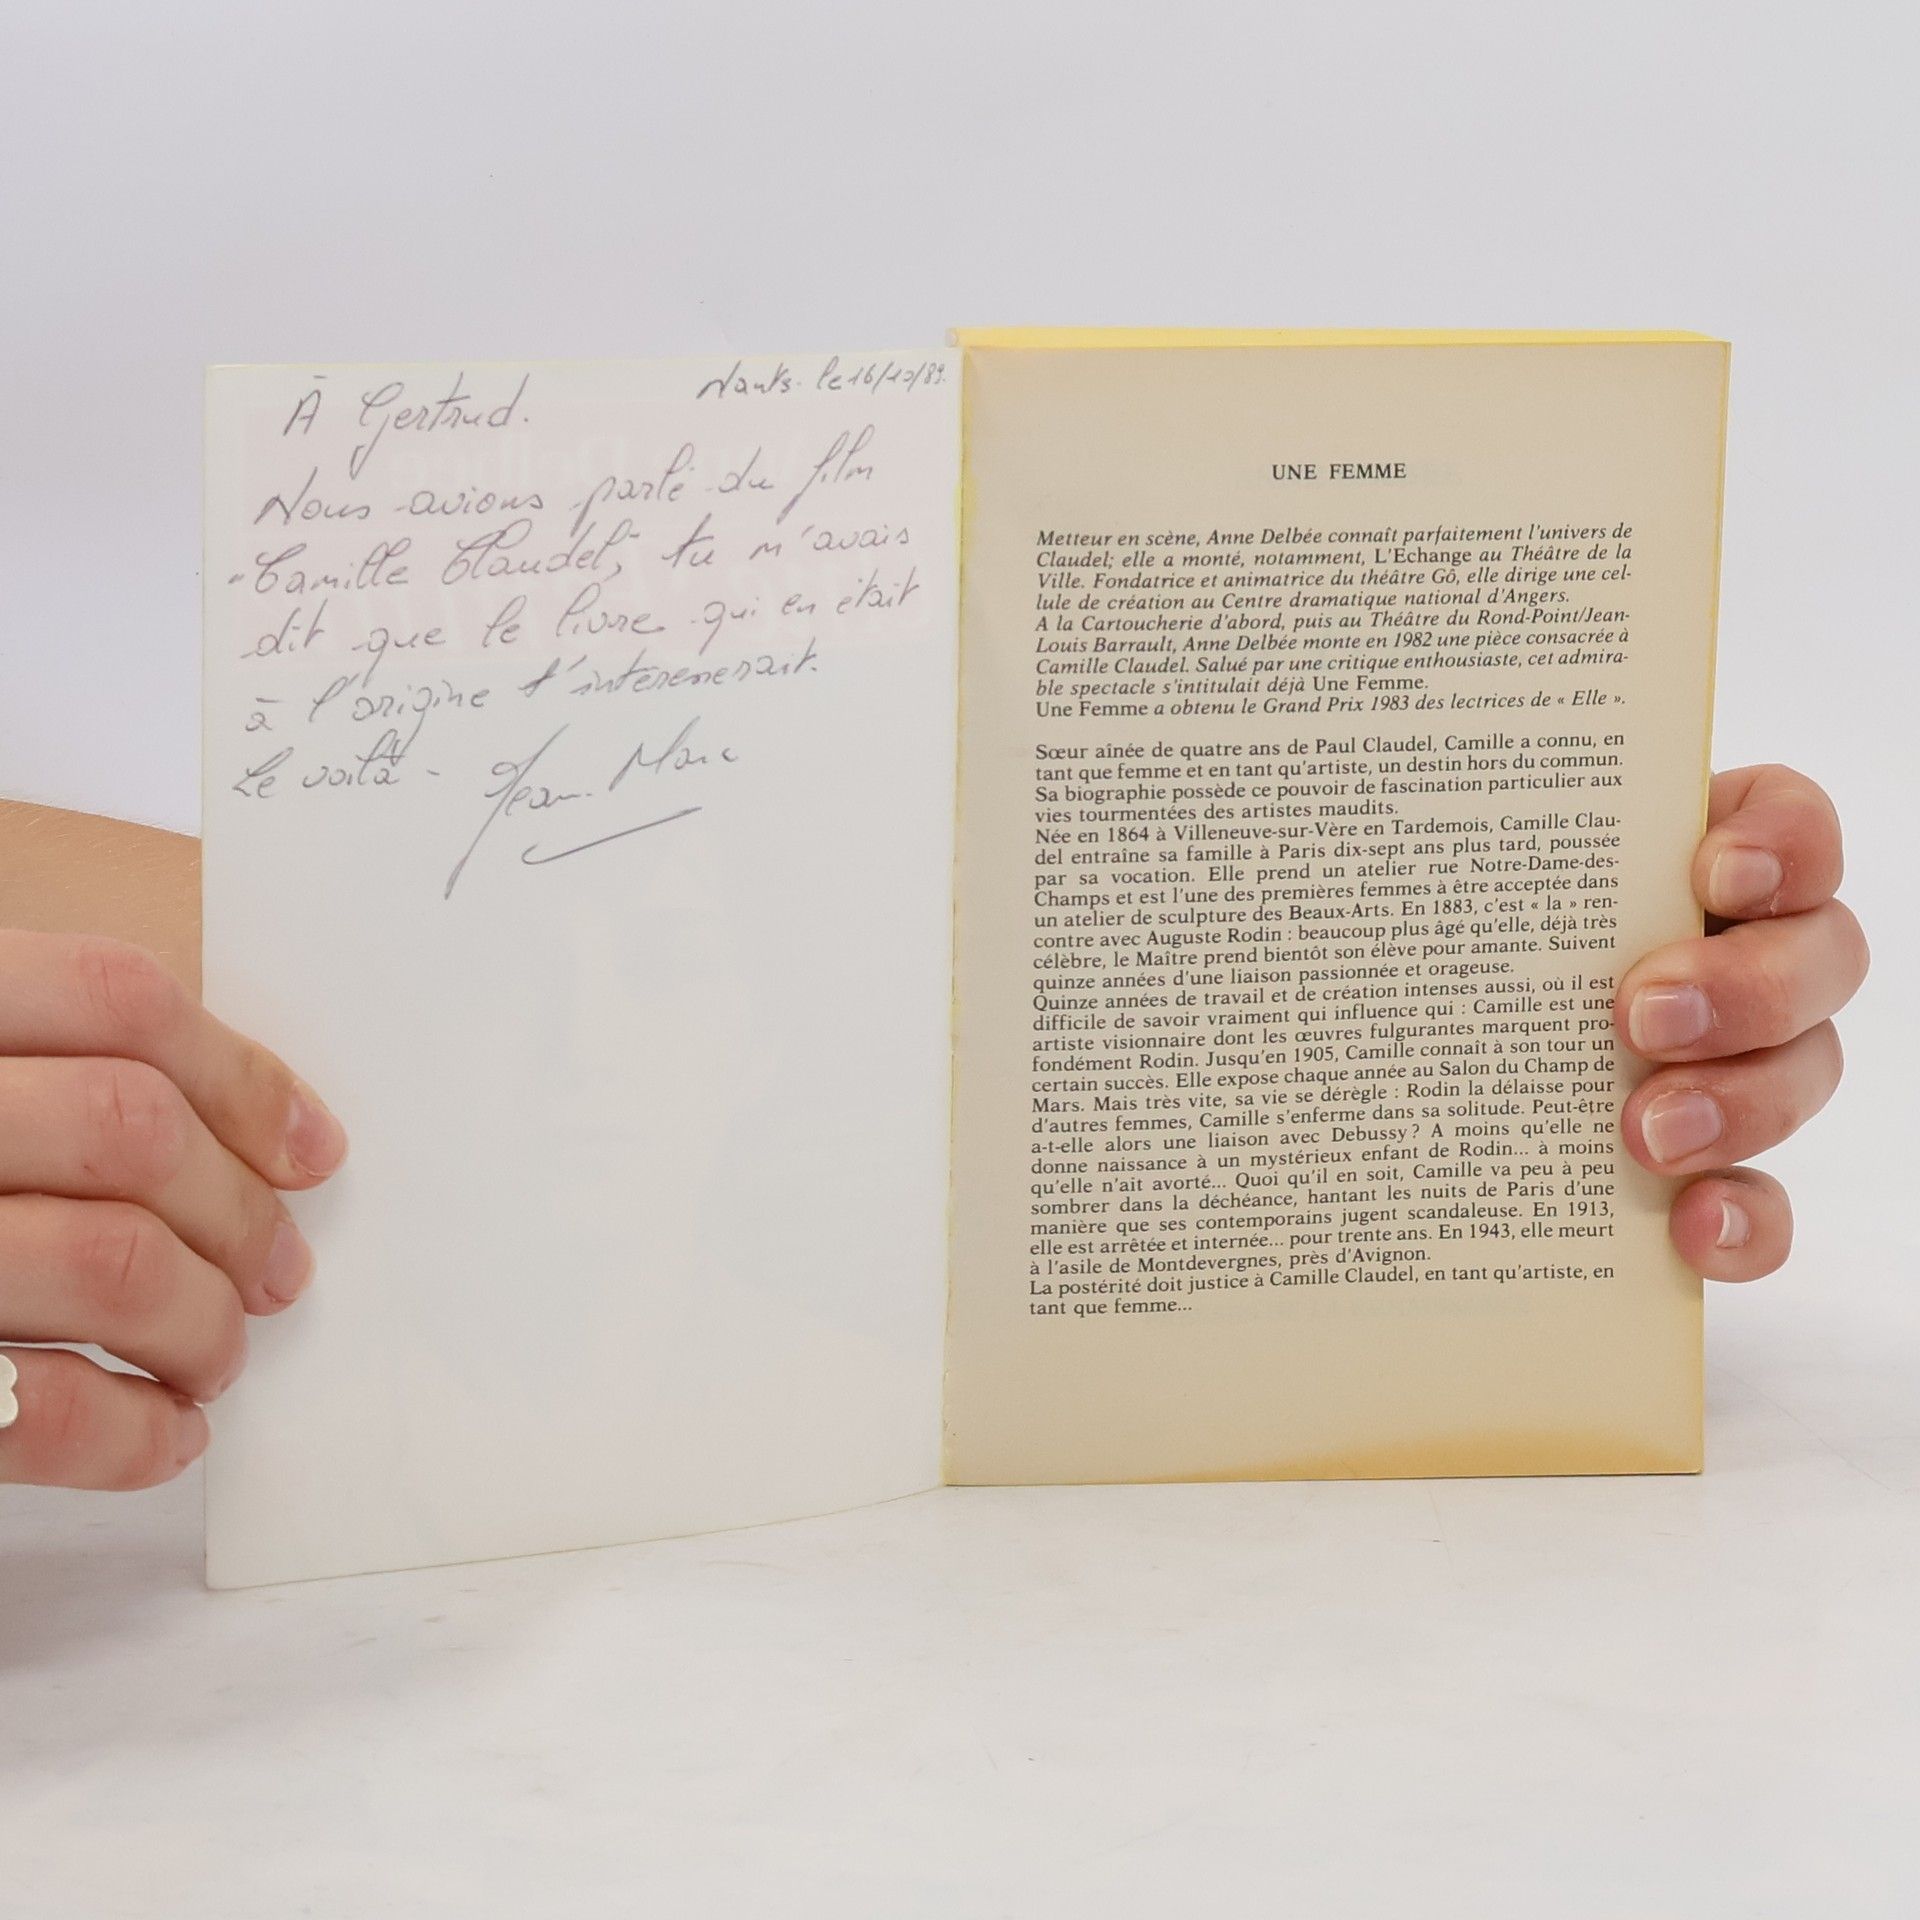 Nantes. le 16/10/89.
À Gertrud.
Nous avions parlé du film
"Camille Claudel", tu m'avais
dit que le livre qui en était
à l'origine t'intéresserait.
Le voilà -
Jean-Marc
UNE FEMME
Metteur en scène, Anne Delbée connaît parfaitement l'univers de
Claudel; elle a monté, notamment, L'Echange au Théâtre de la
Ville. Fondatrice et animatrice du théâtre Gô, elle dirige une cel-
lule de création au Centre dramatique national d'Angers.
A la Cartoucherie d'abord, puis au Théâtre du Rond-Point/Jean-
Louis Barrault, Anne Delbée monte en 1982 une pièce consacrée à
Camille Claudel. Salué par une critique enthousiaste, cet admira-
ble spectacle s'intitulait déjà Une Femme.
Une Femme a obtenu le Grand Prix 1983 des lectrices de « Elle ».
Sœur aînée de quatre ans de Paul Claudel, Camille a connu, en
tant que femme et en tant qu'artiste, un destin hors du commun.
Sa biographie possède ce pouvoir de fascination particulier aux
vies tourmentées des artistes maudits.
Née en 1864 à Villeneuve-sur-Vère en Tardemois, Camille Clau-
del entraîne sa famille à Paris dix-sept ans plus tard, poussée
par sa vocation. Elle prend un atelier rue Notre-Dame-des-
Champs et est l'une des premières femmes à être acceptée dans
un atelier de sculpture des Beaux-Arts. En 1883, c'est « la » ren-
contre avec Auguste Rodin : beaucoup plus âgé qu'elle, déjà très
célèbre, le Maître prend bientôt son élève pour amante. Suivent
quinze années d'une liaison passionnée et orageuse.
Quinze années de travail et de création intenses aussi, où il est
difficile de savoir vraiment qui influence qui : Camille est une
artiste visionnaire dont les œuvres fulgurantes marquent pro-
fondément Rodin. Jusqu'en 1905, Camille connaît à son tour un
certain succès. Elle expose chaque année au Salon du Champ de
Mars. Mais très vite, sa vie se dérègle : Rodin la délaisse pour
d'autres femmes, Camille s'enferme dans sa solitude. Peut-être
a-t-elle alors une liaison avec Debussy? A moins qu'elle ne
donne naissance à un mystérieux enfant de Rodin... à moins
qu'elle n'ait avorté... Quoi qu'il en soit, Camille va peu à peu
sombrer dans la déchéance, hantant les nuits de Paris d'une
manière que ses contemporains jugent scandaleuse. En 1913,
elle est arrêtée et internée... pour trente ans. En 1943, elle meurt
à l'asile de Montdevergnes, près d'Avignon.
La postérité doit justice à Camille Claudel, en tant qu'artiste, en
tant que femme...